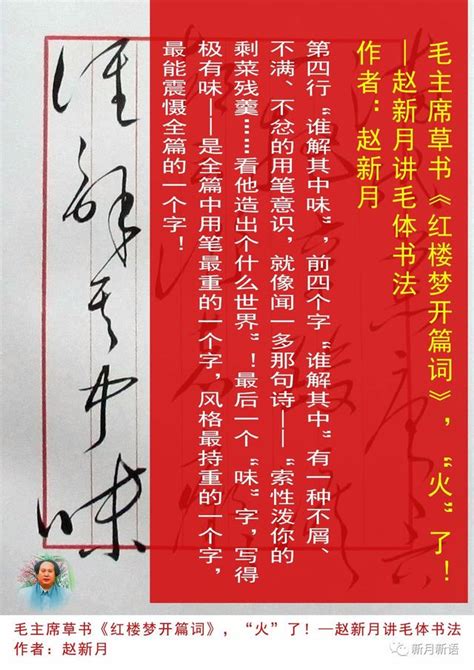 毛主席草书《红楼梦开篇词》，“火”了！
—赵新月讲毛体书法
作者：赵新月
第四行“谁解其中味”，前四个字“谁解其中”有一种不屑、
不满、不忿的用笔意识，就像闻一多那句诗——“索性泼你的
剩菜残羹……看他造出个什么世界”！最后一个“味”字，写得
极有味——是全篇中用笔最重的一个字，风格最持重的一个字，
最能震慑全篇的一个字！
谁解其中味
毛主席草书《红楼梦开篇词》，“火”了！—赵新月讲毛体书法
作者：赵新月
新月新语